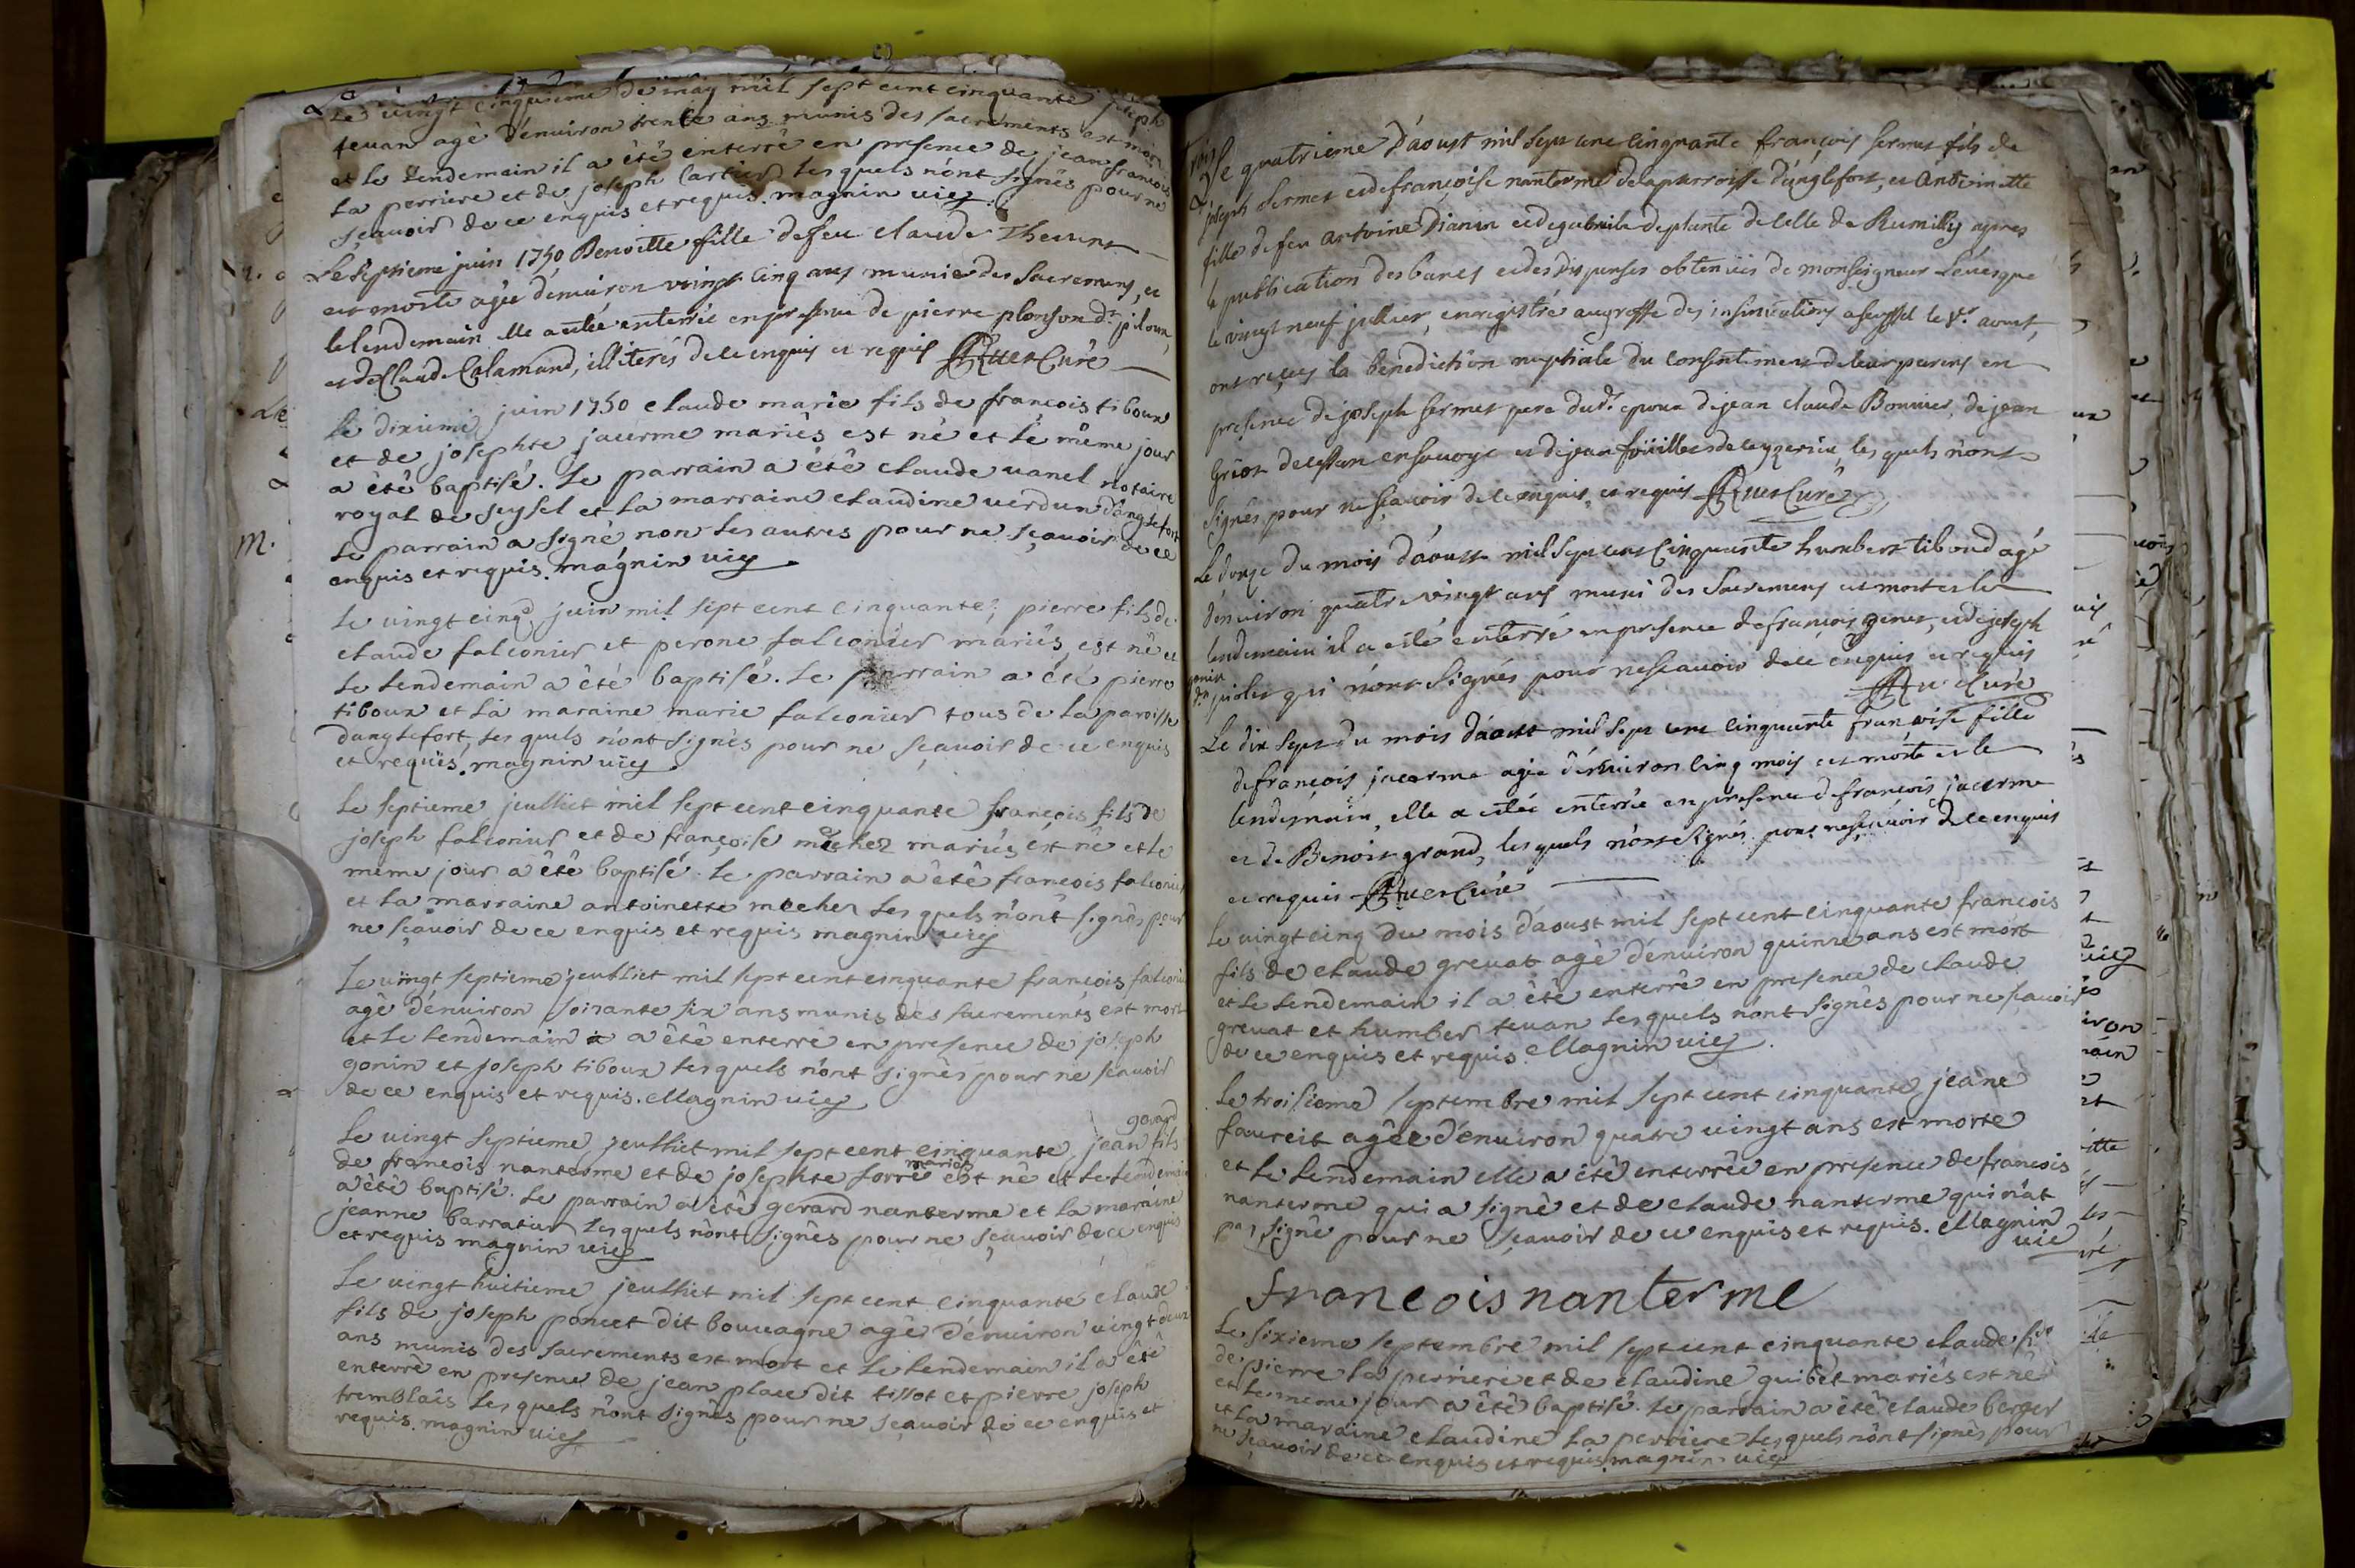 Le vingt cinquieme de may mil sept cent cinquante joseph
teuan agé d'enuiron trente ans munis des sacrements est mort
et le lendemain il a êté enterré en presence de jean francois
la perriere et de joseph Cartier les quels n'ont signés pour ne
sçauoir de ce enquis et requis. magnin uicy
Le septieme juin 1750 Benoitte fille de feu claude Theuent
est morte agée d'enuiron vingt cinq ans munie des Sacremens, et
le lendemain elle a estée enterrée en presence de pierre plonson dt piloux,
et de Claude Calamand, illiterés de ce enquis et requis Curé
Le dixieme juin 1750 claude marie fils de francois tiboux
et de josephte jacerme mariés est né et le même jour
a êté baptisé. Le parrain a êté claude uanel notaire
royal de seysel et la marraine claudine uerdun d'anglefort
le parrain a signé non les autres pour ne sçauoir de ce
enquis et requis. magnin uicy
Le uingt cinq juin mil sept cent cinquante, pierre fils de
claude falconier et perone falconier mariés, est né et
le lendemain a êté baptisé. Le parrain a êté pierre
tiboux et la maraine marie falconier tous de la paroisse
danglefort, les quels n'ont signés pour ne sçauoir de ce enquis
et requis. magnin uicy
Le septieme jeulliet mil sept cent cinquante francois fils de
joseph falconier et de françoise mechez mariés est né et le
meme jour a êté baptisé. Le parrain a êté francois falconier
et la marraine antoinette mechez les quels n'ont signés pour
ne sçauoir de ce enquis et requis magnin uicy
Le uingt septieme jeulliet mil sept cent cinquante francois falconier
agé d'enuiron soixante six ans munis des sacrements est mort
et le lendemain a êté enterré en presence de joseph
gonin et joseph tiboux les quels n'ont signés pour ne sçauoir
de ce enquis et requis. Magnin uicy
gerard
Le uingt septieme jeulliet mil sept cent cinquante, jean fils
mariés
de francois nanterme et de josephte sorre est né et le lendemain
a êté baptisé. Le parrain a êté gerard nanterme et la maraine
jeanne barratier les quels n'ont signés pour ne sçauoir de ce enquis
et requis magnin uicy
Le uingt huitieme jeulliet mil sept cent cinquante claude
fils de joseph poncet dit bouuagne agé d'enuiron uingt deux
ans munis des sacrements est mort et le lendemain il a êté
enterré en presence de jean place dit tissot et pierre joseph
tremblais les quels n'ont signés pour ne sçauoir de ce enquis et
requis. magnin uicy
Le quatrieme d'aoust mil sept cent cinquante françois sermet fils de
joseph sermet et de françoise nanterme de la parroisse d'anglefort, et Antoinette
fille de feu Antoine Dianin et de gabrielle deplante de celle de Rumilly apres
la publication des bancs et des dispenses obtenües de monseigneur L'euesque
le vingt neuf juillier, enregistré au greffe des insinuations a seyssel le 1er aoust,
ont reçeu la benediction nuptiale du consentement de leur parens en
presence de joseph sermet pere du dt epoux de jean claude Bonnier, de jean
en sauoye et de jean les quels n'ont
signés pour ne sçauoir de ce enquis, et requis Curé
Le douze du mois d'aoust mil sept cent Cinquante humbert tiboud agé
d'enuiron quatre vingt ans muni des Sacremens est mort et le
lendemain il a esté enterré en presence de françois genet, et de joseph
gonin
dt piolet qui n'ont signés pour ne sçauoir de ce enquis et requis
Curé
Le dix sept du mois d'aoust mil sept cent cinquante françoise fille
de françois jacerme agée d'enuiron cinq mois est morte et le
lendemain, elle a estée enterrée en presence de francois jacerme
et de Benoit grand, les quels n'ont signés pour ne sçauoir de ce enquis
et requis Curé
Le uingt cinq du mois d'aoust mil sept cent cinquante francois
fils de claude greuat agé d'enuiron quinze ans est mort
et le lendemain il a êté enterré en presence de claude
greuat et humber teuan les quels n'ont signés pour ne sçauoir
de ce enquis et requis Magnin uicy.
Le troisieme septembre mil sept cent cinquante, jeane
faureit agée d'enuiron quatre uingt ans est morte
et le lendemain elle a êté enterrée en presence de francois
nanterme qui a signé et de claude nanterme qui n'at
pas signé pour ne sçauoir de ce enquis et requis. Magnin
uic
francois nanterme
Le sixieme septembre mil sept cent cinquante claude fils
de pierre la perriere et de claudine quibet mariés est né
et le meme jour a êté baptisé. Le parrain a êté claude berger
et la maraine claudine la perriere les quels n'ont signés pour
ne sçauoir de ce enquis et requis magnin uicy